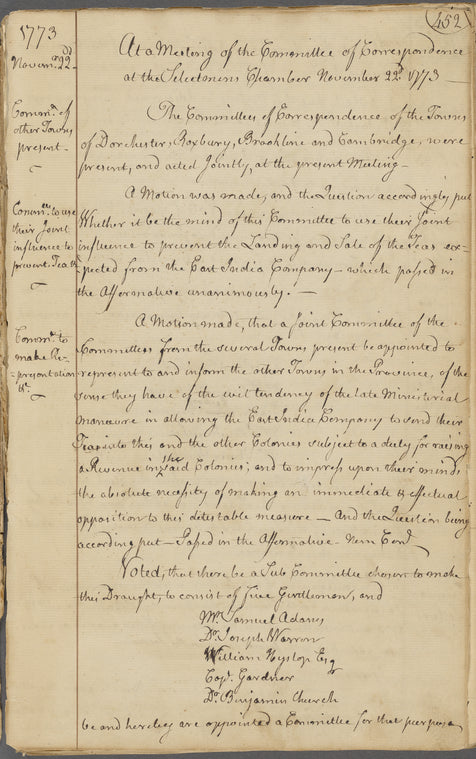 452
1773
Novemr. 22d.
At a Meeting of the Committee of Correspondence
at the Selectmens Chamber November 22d. 1773
Comme. of
other Towns
present
The Committees of Correspondence of the Towns
of Dorchester, Roxbury, Brookline and Cambridge, were
present, and acted Jointly, at the present Meeting
Comme. to use
their Joint
influence to
prevent Tea &c
A Motion was made, and the Question accordingly put
Whether it be the mind of this Committee to use their Joint
influence to prevent the Landing and Sale of the Teas ex-
-pected from the East India Company — which passed in
the Affirmative unanimously. —
Comme. to
make Re-
-presentation
&c.
A Motion made, that a Joint Committee of the
Committees from the several Towns present be appointed to
represent to and inform the other Towns in the Province, of the
sense they have of the evil tendency of the late Ministerial
manœuvre in allowing the East India Company to send their
Teas into this and the other Colonies subject to a duty for raising
a Revenue in the said Colonies; and to impress upon their minds
the absolute necessity of making an immediate & effectual
opposition to this detestable measure — And the Question being
according put — Passed in the Affirmative. Nem Cond
Voted, that there be a Sub Committee chosen to make
this Draught, to consist of five Gentlemen, and
Mr. Samuel Adams
Dr. Joseph Warren
William Hyslop Esq
Capt. Gardner
Dr. Benjamin Church
be and hereby are appointed a Committee for that purpose